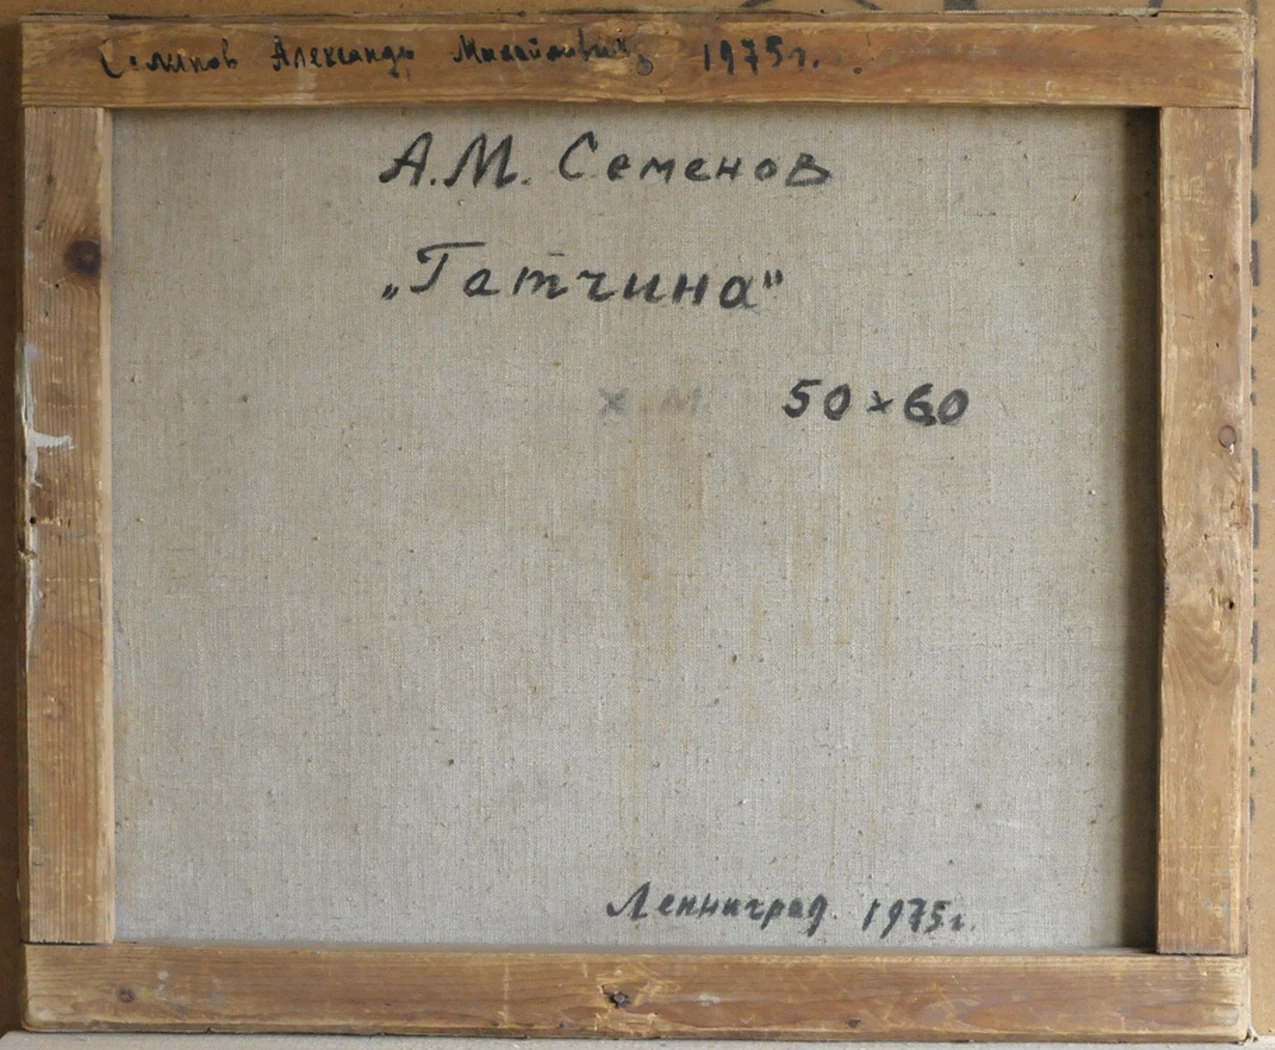 Семенов Александр Михайлович 1975г.
А.М. Семенов
„Гатчина"
х.м. 50×60
Ленинград. 1975г.